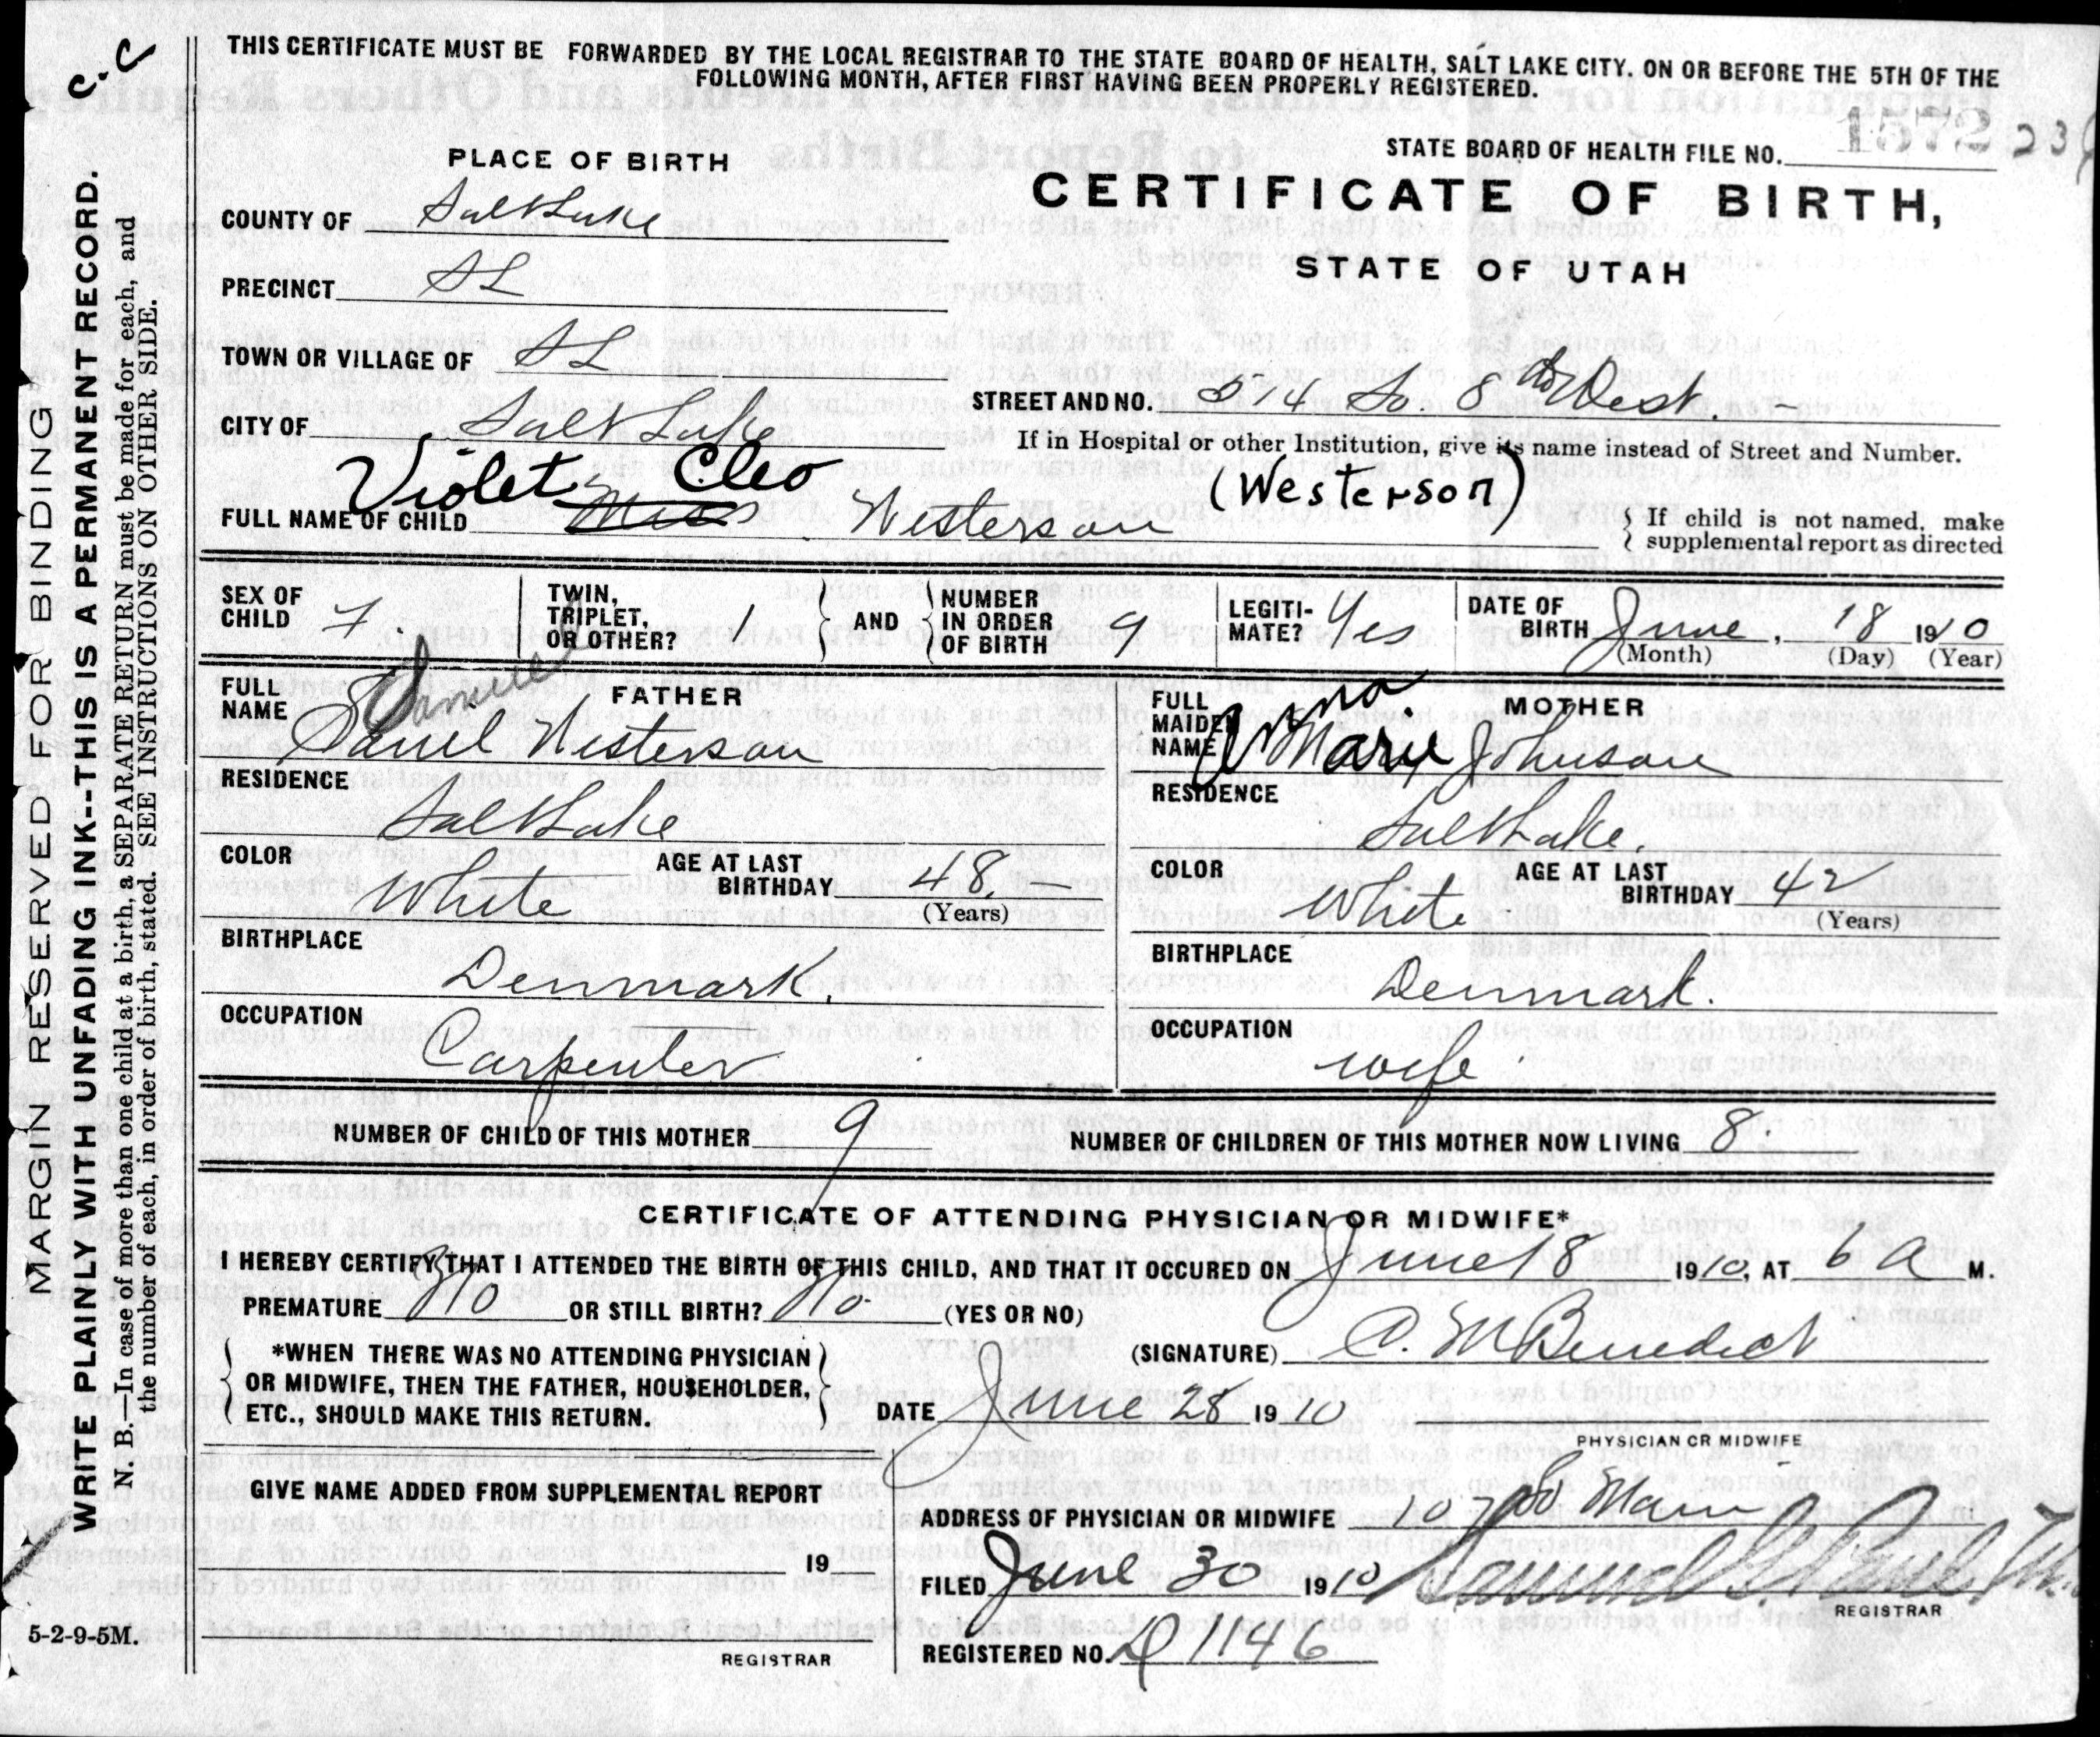 THIS CERTIFICATE MUST BE FORWARDED BY THE LOCAL REGISTRAR TO THE STATE BOARD OF HEALTH, SALT LAKE CITY. ON OR BEFORE THE 5TH OF THE
FOLLOWING MONTH, AFTER FIRST HAVING BEEN PROPERLY REGISTERED.
c.c
MARGIN RESERVED FOR BINDING
WRITE PLAINLY WITH UNFADING INK--THIS IS A PERMANENT RECORD.
N. B.—In case of more than one child at a birth, a SEPARATE RETURN must be made for each, and
the number of each, in order of birth, stated. SEE INSTRUCTIONS ON OTHER SIDE.
STATE BOARD OF HEALTH FILE NO. 1572
PLACE OF BIRTH
CERTIFICATE OF BIRTH,
STATE OF UTAH
COUNTY OF Salt Lake
PRECINCT SL
TOWN OR VILLAGE OF SL
CITY OF Salt Lake
STREET AND NO. 314 So. 8th West.
If in Hospital or other Institution, give its name instead of Street and Number.
Violet Cleo (Westerson)
FULL NAME OF CHILD Miss Westerson
If child is not named, make
supplemental report as directed
SEX OF CHILD F.
TWIN, TRIPLET, OR OTHER? 1
AND
NUMBER IN ORDER OF BIRTH 9
LEGITI-MATE? Yes
DATE OF BIRTH June, 18 1910
(Month) (Day) (Year)
FATHER
Samuel
FULL NAME Daniel Westerson
RESIDENCE Salt Lake
COLOR White
AGE AT LAST BIRTHDAY 48
(Years)
BIRTHPLACE Denmark.
OCCUPATION Carpenter
MOTHER
FULL MAIDEN NAME Anna. Mary Johnson
RESIDENCE Salt Lake.
COLOR White
AGE AT LAST BIRTHDAY 42
(Years)
BIRTHPLACE Denmark.
OCCUPATION wife
NUMBER OF CHILD OF THIS MOTHER 9
NUMBER OF CHILDREN OF THIS MOTHER NOW LIVING 8.
CERTIFICATE OF ATTENDING PHYSICIAN OR MIDWIFE*
I HEREBY CERTIFY THAT I ATTENDED THE BIRTH OF THIS CHILD, AND THAT IT OCCURED ON June 18 1910, AT 6 A M.
PREMATURE No OR STILL BIRTH? No. (YES OR NO)
*WHEN THERE WAS NO ATTENDING PHYSICIAN
OR MIDWIFE, THEN THE FATHER, HOUSEHOLDER,
ETC., SHOULD MAKE THIS RETURN.
(SIGNATURE) C. M Benedict
DATE June 28 1910
PHYSICIAN OR MIDWIFE
GIVE NAME ADDED FROM SUPPLEMENTAL REPORT
19
REGISTRAR
ADDRESS OF PHYSICIAN OR MIDWIFE Main
FILED June 30 1910 Samuel G. Paul
REGISTRAR
REGISTERED NO. D 1146
5-2-9-5M.